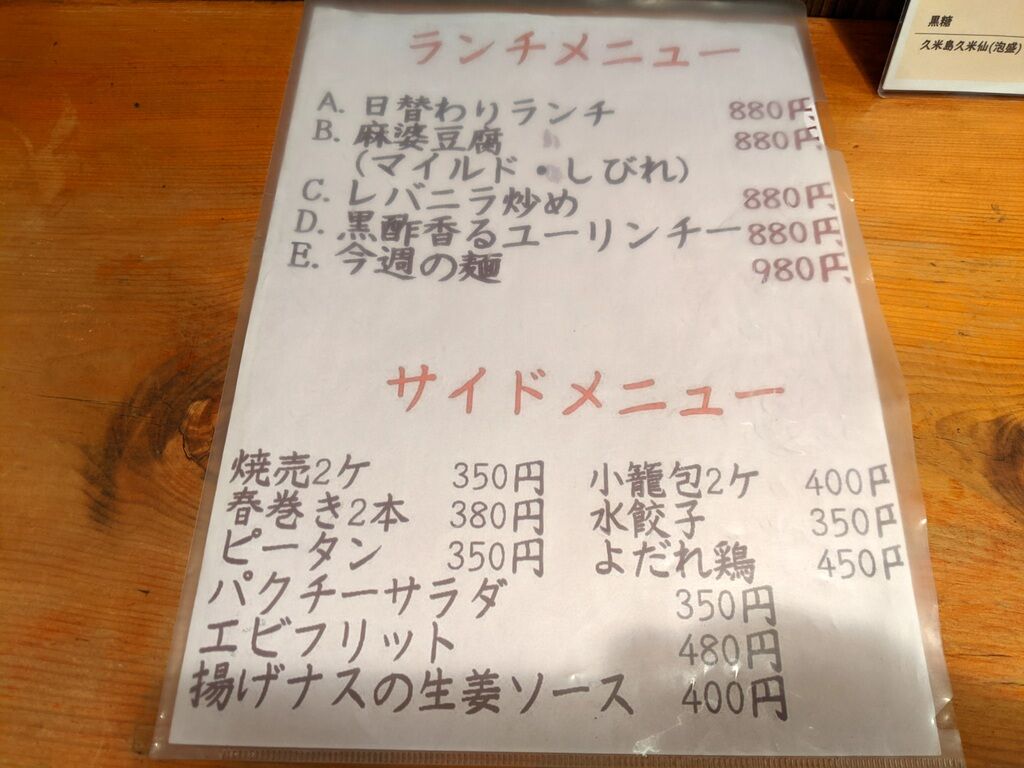 ランチメニュー
A. 日替わりランチ 880円
B. 麻婆豆腐 880円
(マイルド・しびれ)
C. レバニラ炒め 880円
D. 黒酢香るユーリンチー 880円
E. 今週の麺 980円
サイドメニュー
焼売2ケ 350円 小籠包2ケ 400円
春巻き2本 380円 水餃子 350円
ピータン 350円 よだれ鶏 450円
パクチーサラダ 350円
エビフリット 480円
揚げナスの生姜ソース 400円
黒糖
久米島久米仙(泡盛)